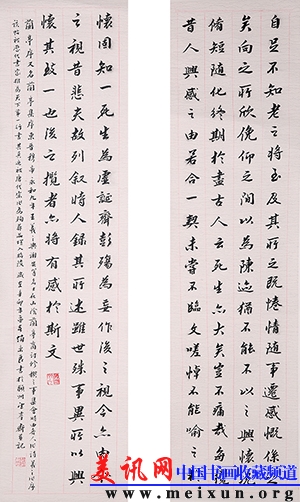 自足不知老之將至及其所之既惓情隨事遷感慨係之
矣向之所欣俛仰之間以為陳迹猶不能不以之興懷況
脩短隨化終期於盡古人云死生亦大矣豈不痛哉每攬
昔人興感之由若合一契未嘗不臨文嗟悼不能喻之於
懷固知一死生為虛誕齊彭殤為妄作後之視今亦由今
之視昔悲夫故列敘時人錄其所述雖世殊事異所以興
懷其致一也後之攬者亦將有感於斯文
蘭亭序又名蘭亭集序東晉穆帝永和九年王羲之與謝安
美讯网
中国书画收藏频道
www.meixun.org